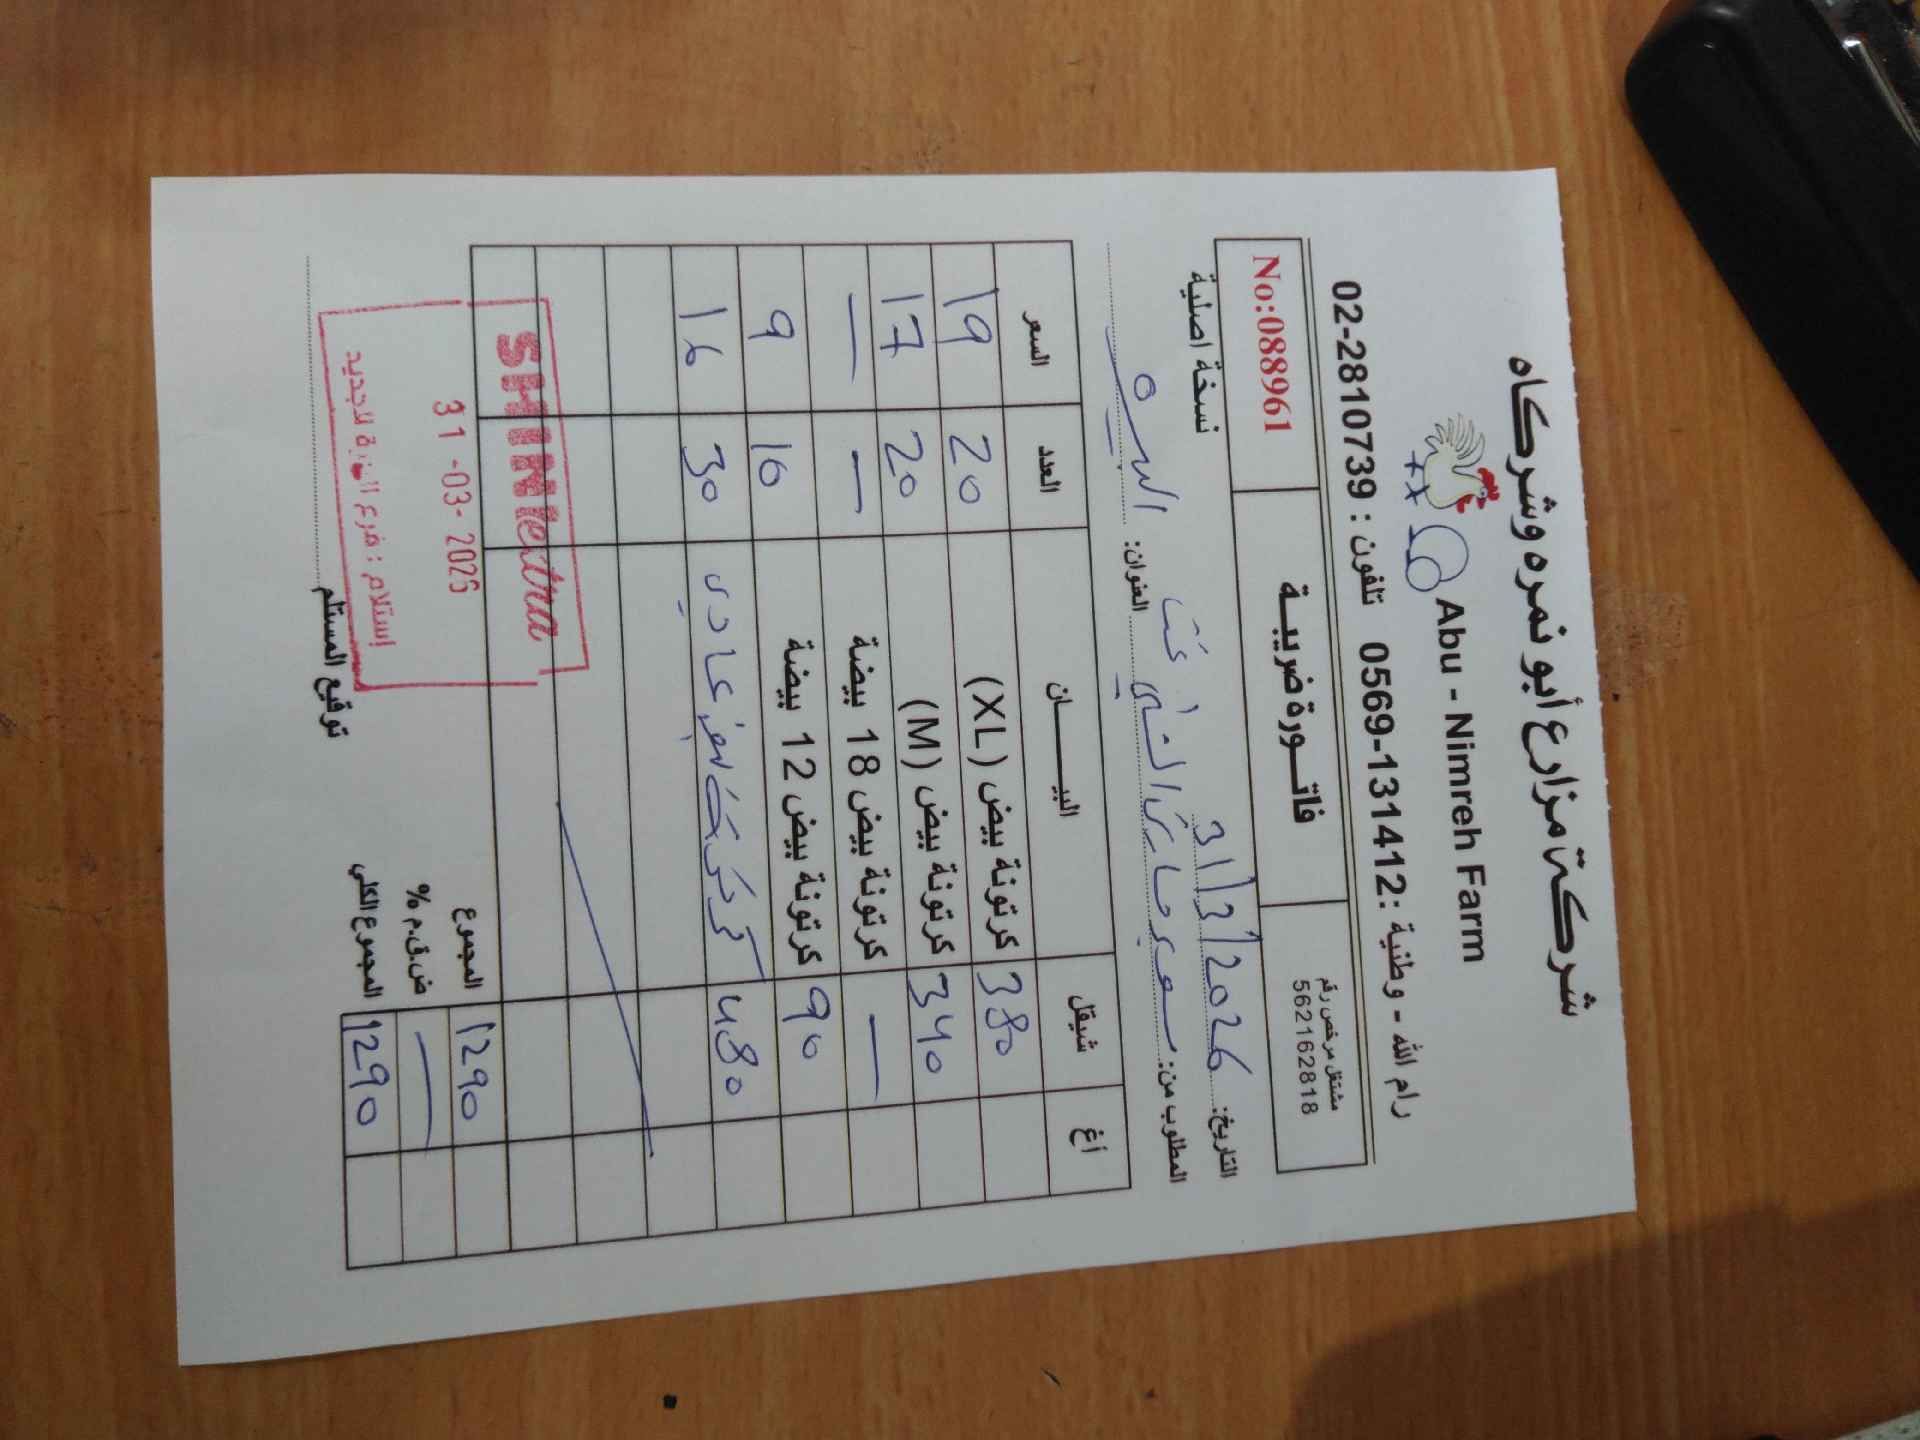 شركة مزارع أبو نمره وشركاه
Abu - Nimreh Farm
رام الله - وطنية : 0569-131412 تلفون : 02-2810739
مشتغل مرخص رقم
562162818
فاتورة ضريبة
No:088961
التاريخ: 31/3/2026
نسخة اصلية
المطلوب من: سوبر ماركت الشني العنوان: البيره
السعر العدد البيان شيقل أغ
19 20 كرتونة بيض (XL) 380
17 20 كرتونة بيض (M) 340
— — كرتونة بيض 18 بيضة —
9 10 كرتونة بيض 12 بيضة 90
16 30 كرتونة بيض عادي 480
SHINIextra
31-03-2026
إستلام : فرع البيرة الجديد
المجموع 1290
ض.ق.م % —
المجموع الكلي 1290
توقيع المستلم